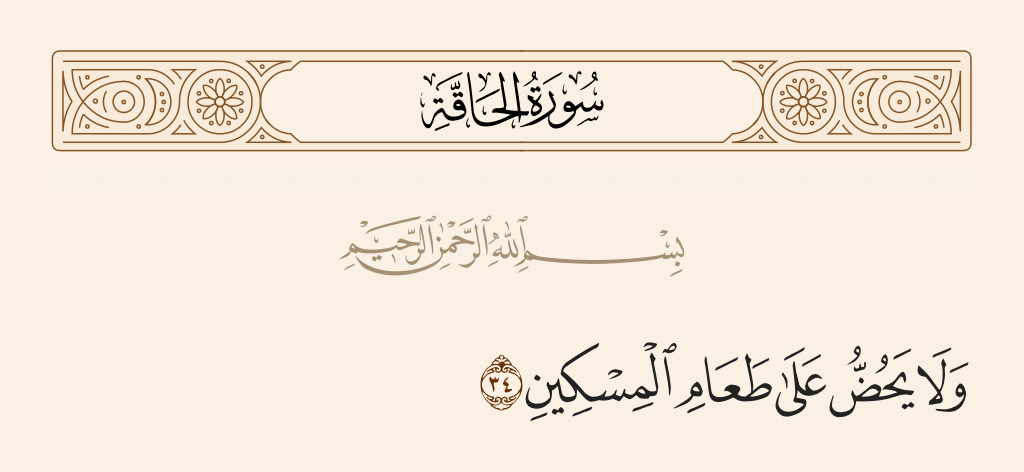 سُورَةُ الحَاقَّةِ
بِسْمِ ٱللَّهِ ٱلرَّحْمَٰنِ ٱلرَّحِيمِ
وَلَا يَحُضُّ عَلَىٰ طَعَامِ ٱلْمِسْكِينِ ٣٤